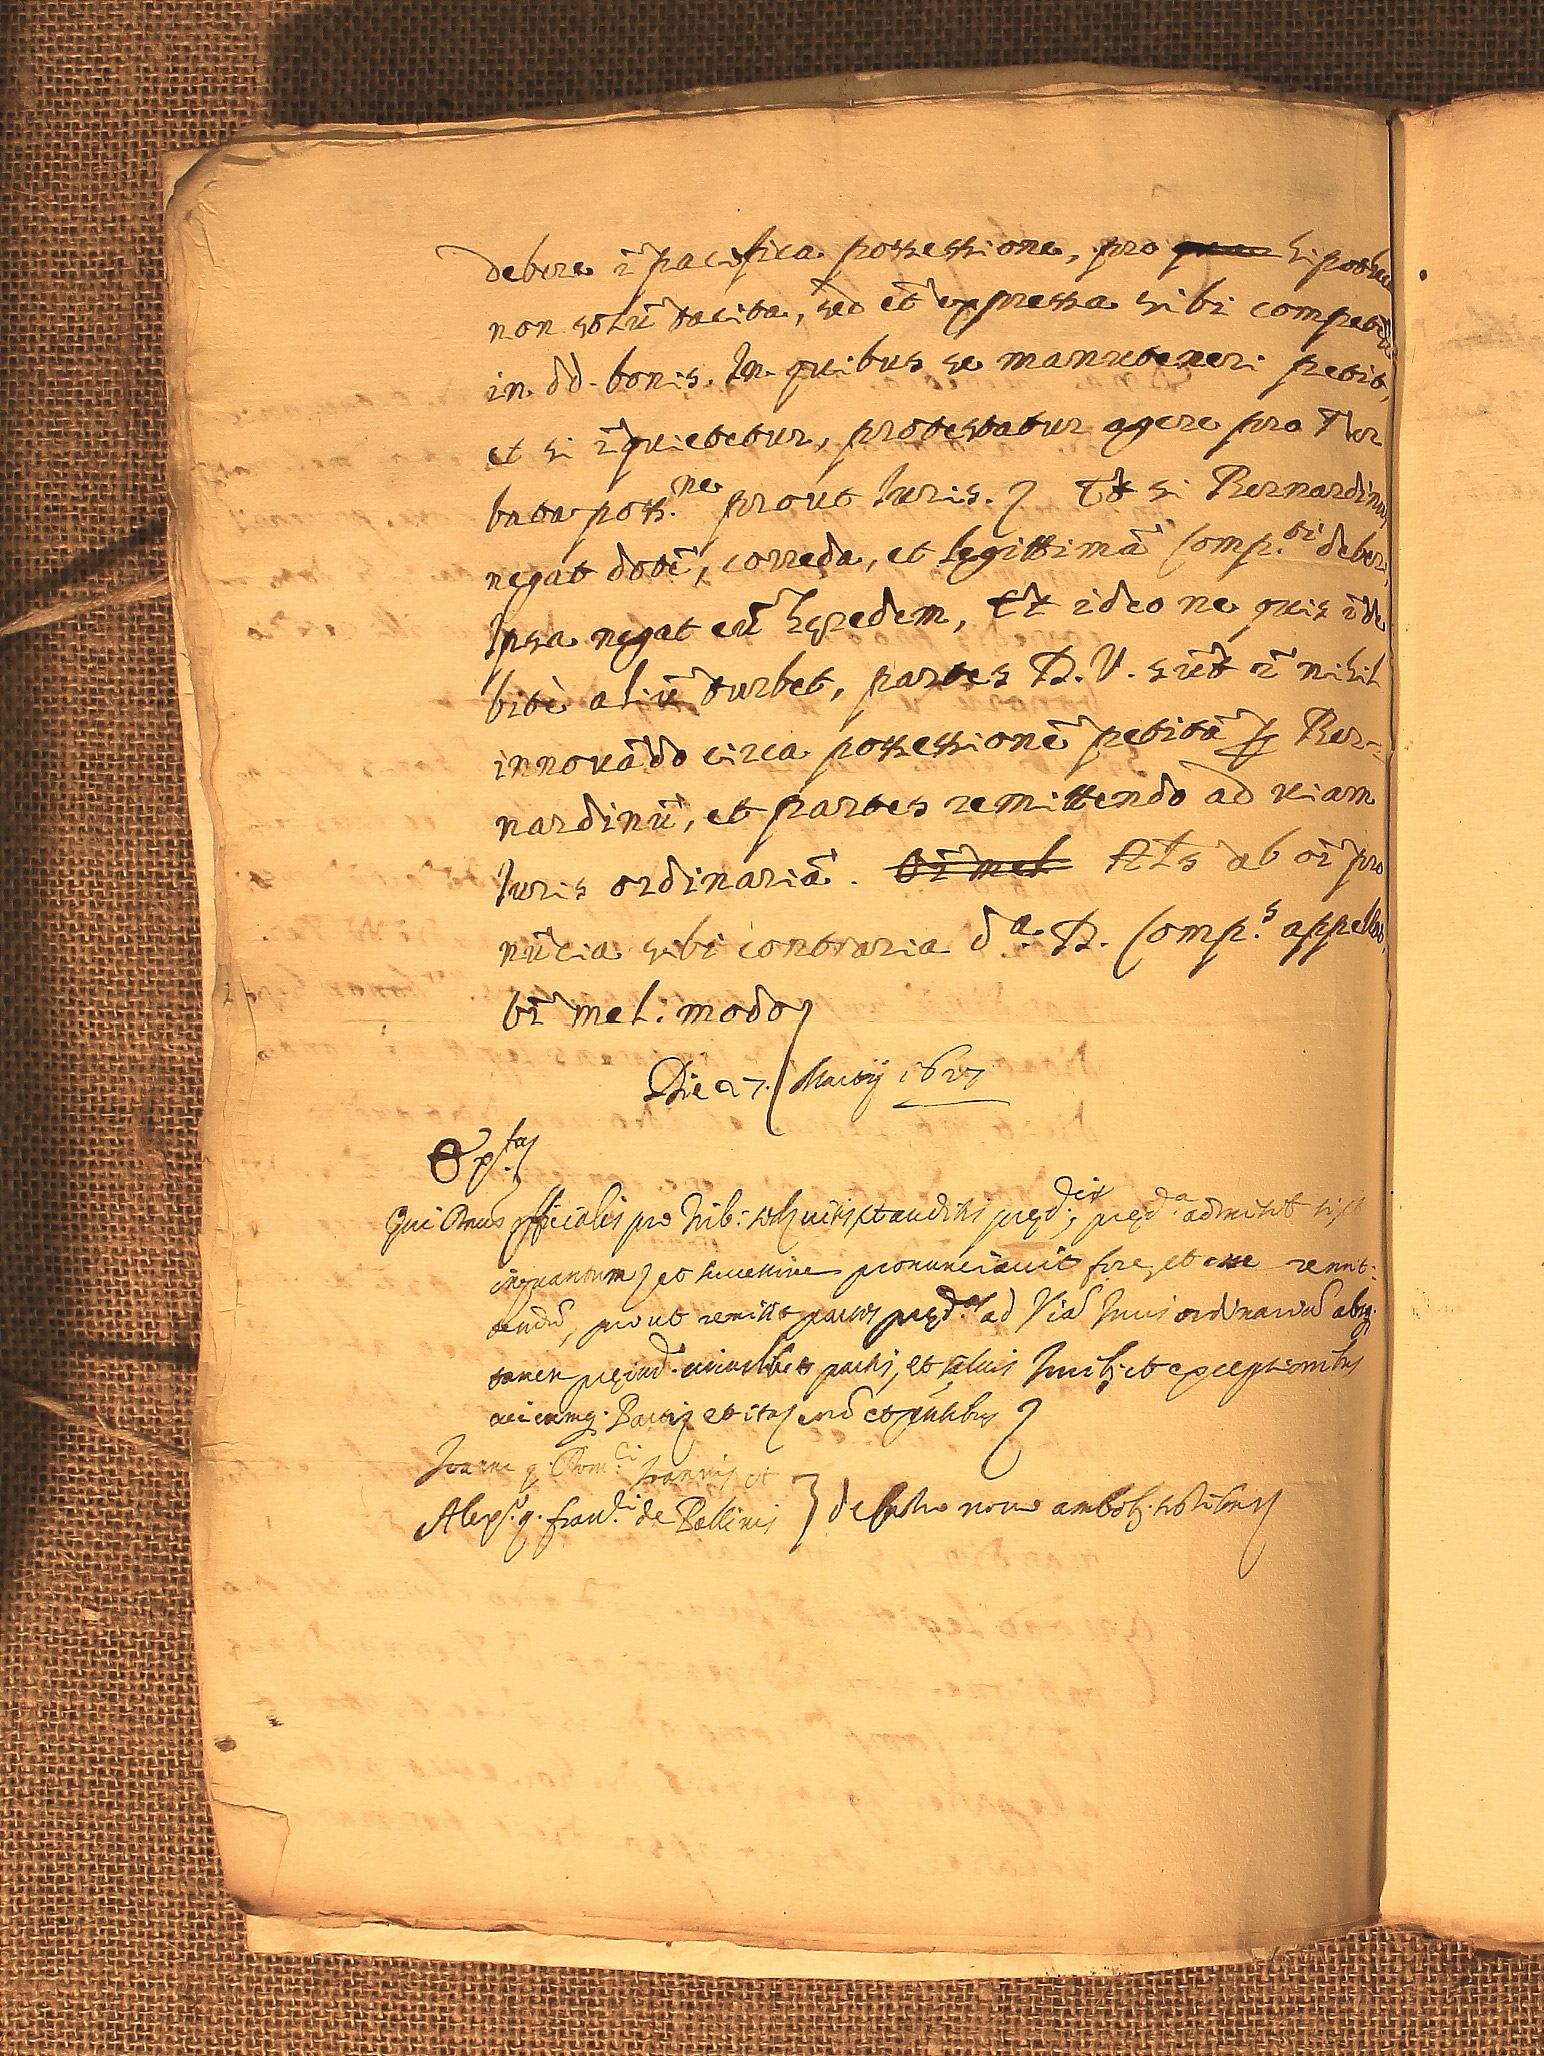 debere ī pacifica possessione, pro
non solū tacita, sed et expressa sibi compet
in dd. bonis. In quibus se manuteneri petit,
et si īquietetur, protestatur agere pro Tur
bata poss.ne prout Iuris. Et si Bernardinus
negat dotē, correda, et legittimā Comp.ti deberi,
Ipsa negat eū hęredem, Et ideo ne quis īde
bitè aliū turbet, partes D. V. sūt ī nihil
innouādo circa possessionē petitā p Ber-
nardinū, et partes remittendo ad uiam
Iuris ordinariā. Oī mel Als ab oī pro
nūcia sibi contraria d.a D. Comp.s appellat,
oī mel: modo
Die 27. Martij 1627
Qui Dnus officialis pro Trib: sed. uisis et auditis pręd. pręd.a admisit si et
inquantum et successiue pronunciauit fore, et esse remit-
tendū, prout remisit partes pręd.as ad Viā Iuris ordinariā absq.
tamen pręiud. cuiuslibet partis, et saluis Iurib. et exceptionibus
utriusq. Partis et ita omi
Ioanne q. Dom.ci Ioannis et
Alex.o q. Fran.ci de Ballinis } de nouo ambob. testibus